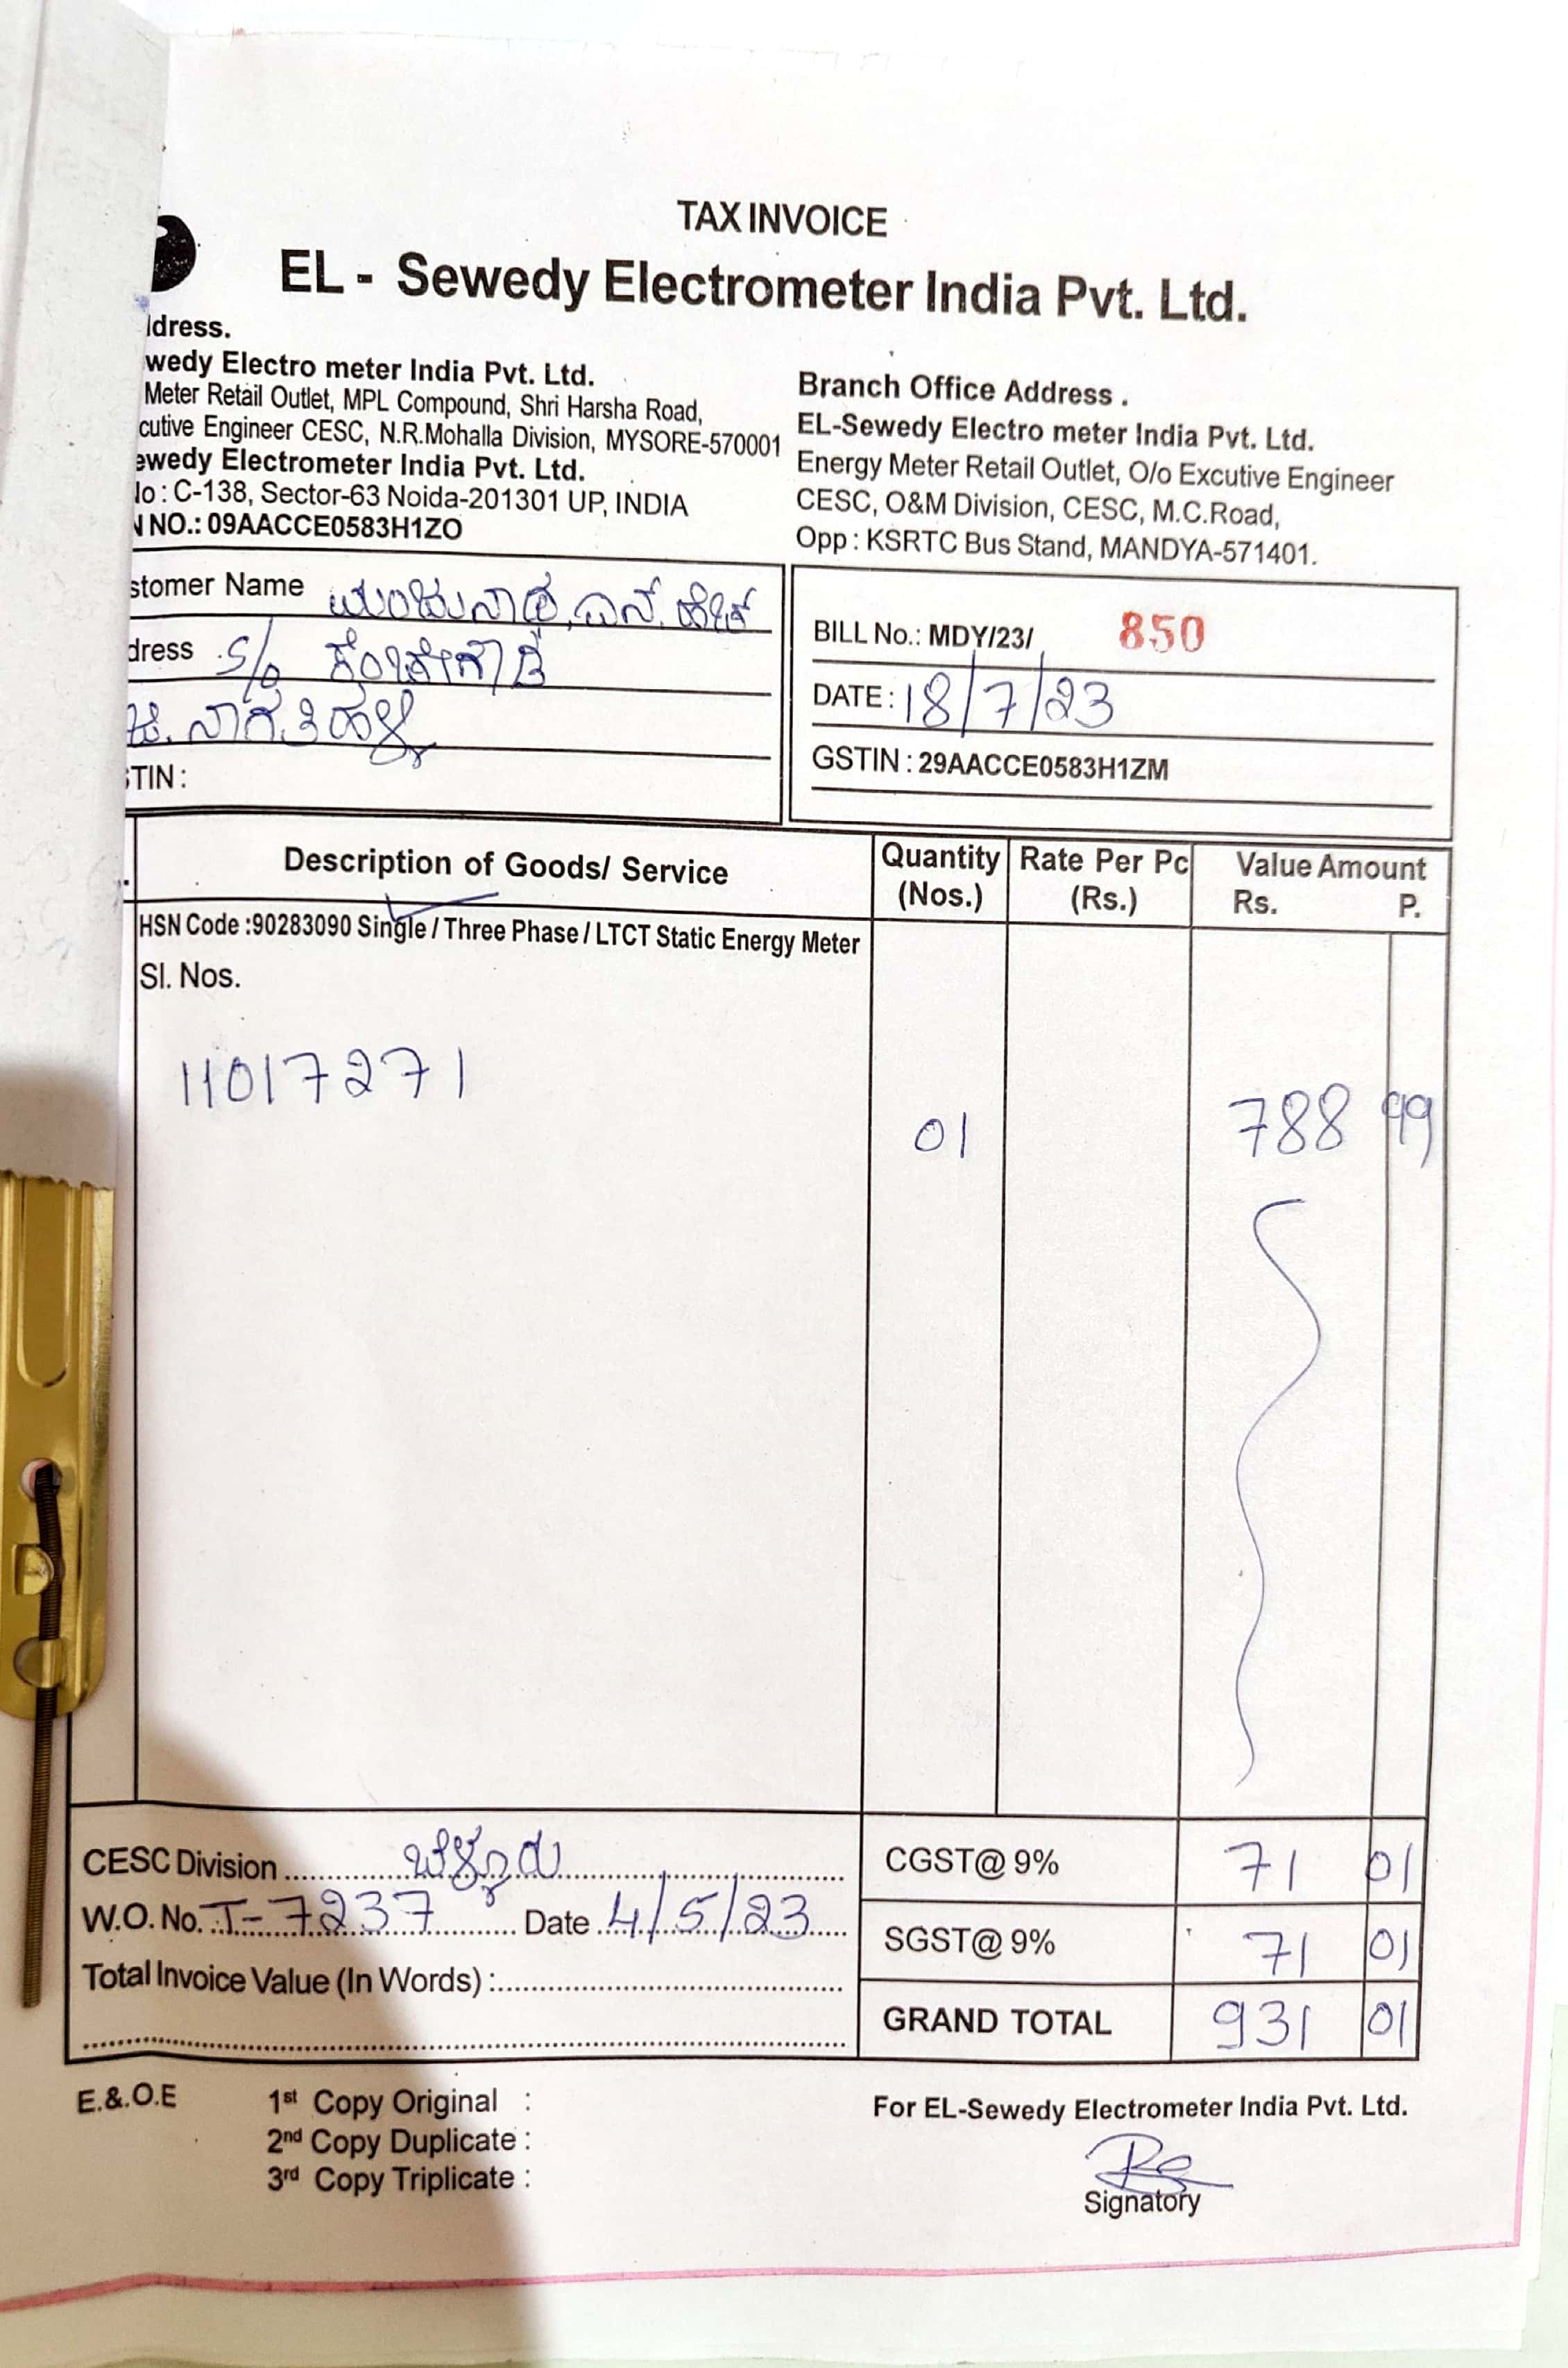 TAX INVOICE
EL - Sewedy Electrometer India Pvt. Ltd.
ldress.
wedy Electro meter India Pvt. Ltd.
Meter Retail Outlet, MPL Compound, Shri Harsha Road,
cutive Engineer CESC, N.R.Mohalla Division, MYSORE-570001
ewedy Electrometer India Pvt. Ltd.
lo : C-138, Sector-63 Noida-201301 UP, INDIA
N NO.: 09AACCE0583H1ZO
Branch Office Address .
EL-Sewedy Electro meter India Pvt. Ltd.
Energy Meter Retail Outlet, O/o Excutive Engineer
CESC, O&M Division, CESC, M.C.Road,
Opp : KSRTC Bus Stand, MANDYA-571401.
stomer Name ಮಂಜುನಾಥ, ಎನ್. ಹೆಚ್
dress S/o ಕೆಂಚೇಗೌಡ
ಜಿ. ನಾಗತಿಹಳ್ಳಿ
STIN :
BILL No.: MDY/23/ 850
DATE : 18/7/23
GSTIN : 29AACCE0583H1ZM
Description of Goods/ Service Quantity (Nos.) Rate Per Pc (Rs.) Value Amount Rs. P.
HSN Code :90283090 Single / Three Phase / LTCT Static Energy Meter
Sl. Nos.
11017271
01 788 99
CESC Division ಬೆಳ್ಳೂರು
W.O. No. T-7237 Date 4/5/23
Total Invoice Value (In Words) :
CGST@ 9% 71 01
SGST@ 9% 71 01
GRAND TOTAL 931 01
E.&.O.E
1st Copy Original :
2nd Copy Duplicate :
3rd Copy Triplicate :
For EL-Sewedy Electrometer India Pvt. Ltd.
Signatory